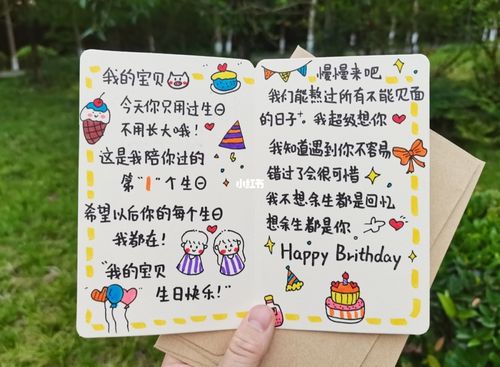 我的宝贝
今天你只用过生日
不用长大哦！
这是我陪你过的
第"1"个生日
希望以后你的每个生日
我都在！
"我的宝贝
生日快乐！"
小红书
慢慢来吧
我们能熬过所有不能见面
的日子。我超级想你
我知道遇到你不容易
错过了会很可惜
我不想余生都是回忆
想余生都是你
Happy Brithday